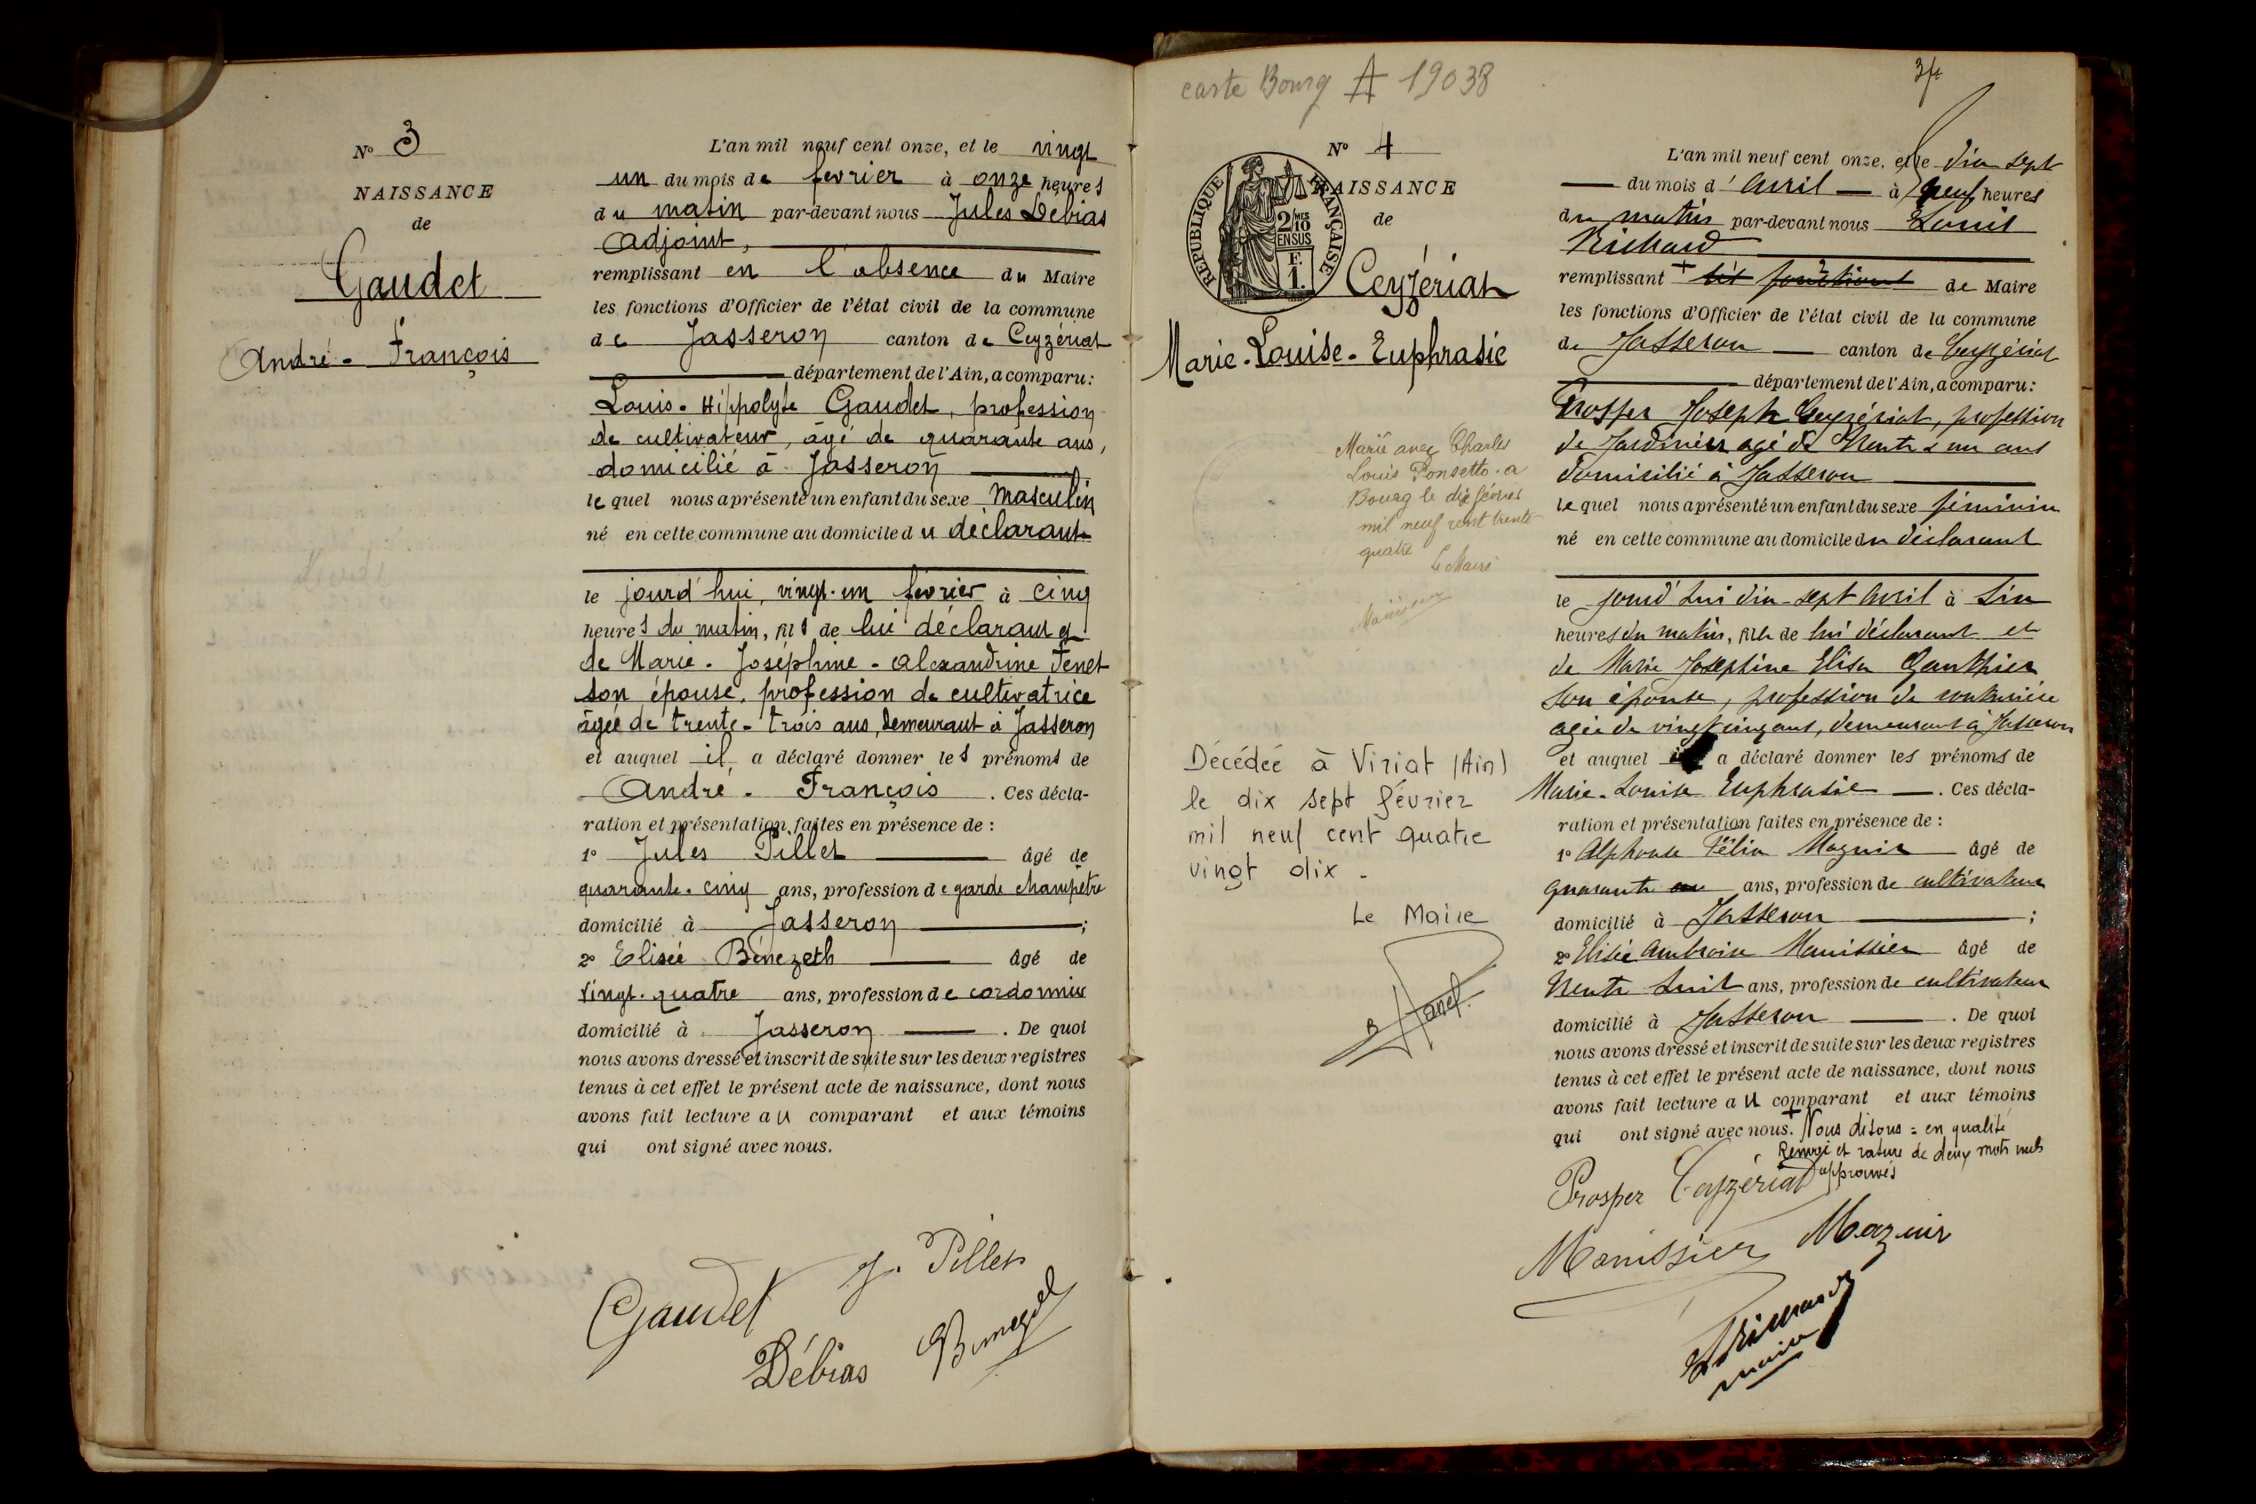 N° 3
NAISSANCE
de
Gaudet
André - François
L'an mil neuf cent onze, et le vingt
un du mois de fevrier à onze heures
du matin par-devant nous Jules Débias
adjoint,
remplissant en l'absence du Maire
les fonctions d'Officier de l'état civil de la commune
de Jasseron canton de Ceyzériat
département de l'Ain, a comparu :
Louis - Hippolyte Gaudet, profession
de cultivateur, âgé de quarante ans,
domicilié à Jasseron
lequel nous a présenté un enfant du sexe masculin
né en cette commune au domicile du déclarant
le jourd'hui, vingt-un février à cinq
heures du matin, fils de lui déclarant et
de Marie - Joséphine - Alexandrine Tenet
son épouse, profession de cultivatrice
âgée de trente-trois ans, demeurant à Jasseron
et auquel il a déclaré donner les prénoms de
André - François . Ces décla-
ration et présentation faites en présence de :
1° Jules Pillet âgé de
quarante-cinq ans, profession de garde champêtre
domicilié à Jasseron ;
2° Elisée Bénezeth âgé de
vingt-quatre ans, profession de cordonnier
domicilié à Jasseron . De quoi
nous avons dressé et inscrit de suite sur les deux registres
tenus à cet effet le présent acte de naissance, dont nous
avons fait lecture au comparant et aux témoins
qui ont signé avec nous.
Gaudet J. Pillet
Débias
carte Bourg A 19038
N° 4
NAISSANCE
de
RÉPUBLIQUE FRANÇAISE
2/10 MES
EN SUS
F.
1.
Ceyzériat
Marie - Louise - Euphrasie
Marié avec Charles
Louis Ponsetto a
Bourg le dix février
mil neuf cent trente
quatre
Le Maire
Décédée à Viriat (Ain)
le dix sept février
mil neuf cent quatre
vingt dix .
Le Maire
L'an mil neuf cent onze, et le dix sept
du mois d'avril à neuf heures
du matin par-devant nous Louis
Richard
remplissant + de Maire
les fonctions d'Officier de l'état civil de la commune
de Jasseron canton de Ceyzériat
département de l'Ain, a comparu :
Prosper Joseph Ceyzériat, profession
de Jardinier agé de trente un ans
domicilié à Jasseron
lequel nous a présenté un enfant du sexe féminin
né en cette commune au domicile du déclarant
le jourd'hui dix-sept avril à six
heures du matin, fille de lui déclarant et
de Marie Joséphine Elisa Gauthier
son épouse, profession de couturière
agée de vingt cinq ans, demeurant à Jasseron
et auquel il a déclaré donner les prénoms de
Marie-Louise Euphrasie . Ces décla-
ration et présentation faites en présence de :
1° Alphonse Félix Mazuir âgé de
quarante ans, profession de cultivateur
domicilié à Jasseron ;
2° Elisée Ambroise Manissier âgé de
trente huit ans, profession de cultivateur
domicilié à Jasseron . De quoi
nous avons dressé et inscrit de suite sur les deux registres
tenus à cet effet le présent acte de naissance, dont nous
avons fait lecture au comparant et aux témoins
qui ont signé avec nous. + Nous disons = en qualité
Renvoi et rature de deux mots nuls
approuvés
Prosper Ceyzériat
Manissier Mazuir
maire